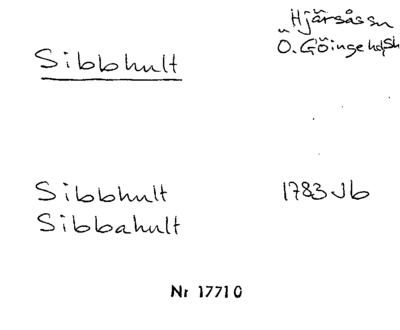 Hjärsås sn
Ö. Göinge hd Sk
Sibbhult
Sibbhult 1783 Jb
Sibbahult
Nr 17710